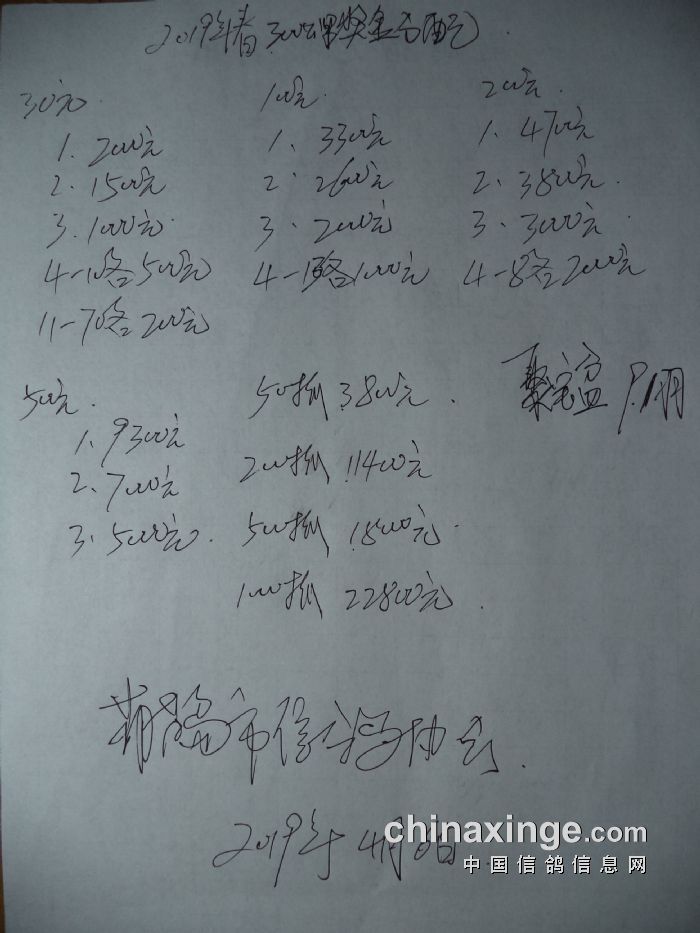 2019年春300公里奖金分配
30元
1. 2000元
2. 1500元
3. 1000元
4-10名500元
11-70名200元
100元
1、3300元
2、2600元
3、2000元
4-10名1000元
200元
1. 4700元
2、3800元
3、3000元
4-8名2000元
50元
1、9300元
2、7000元
3、5000元
50抓 3800元
200抓 11400元
500抓 18000元
1000抓 22800元
聚宝盆
市信鸽协会
2019年4月
chinaxinge.com
中国信鸽信息网